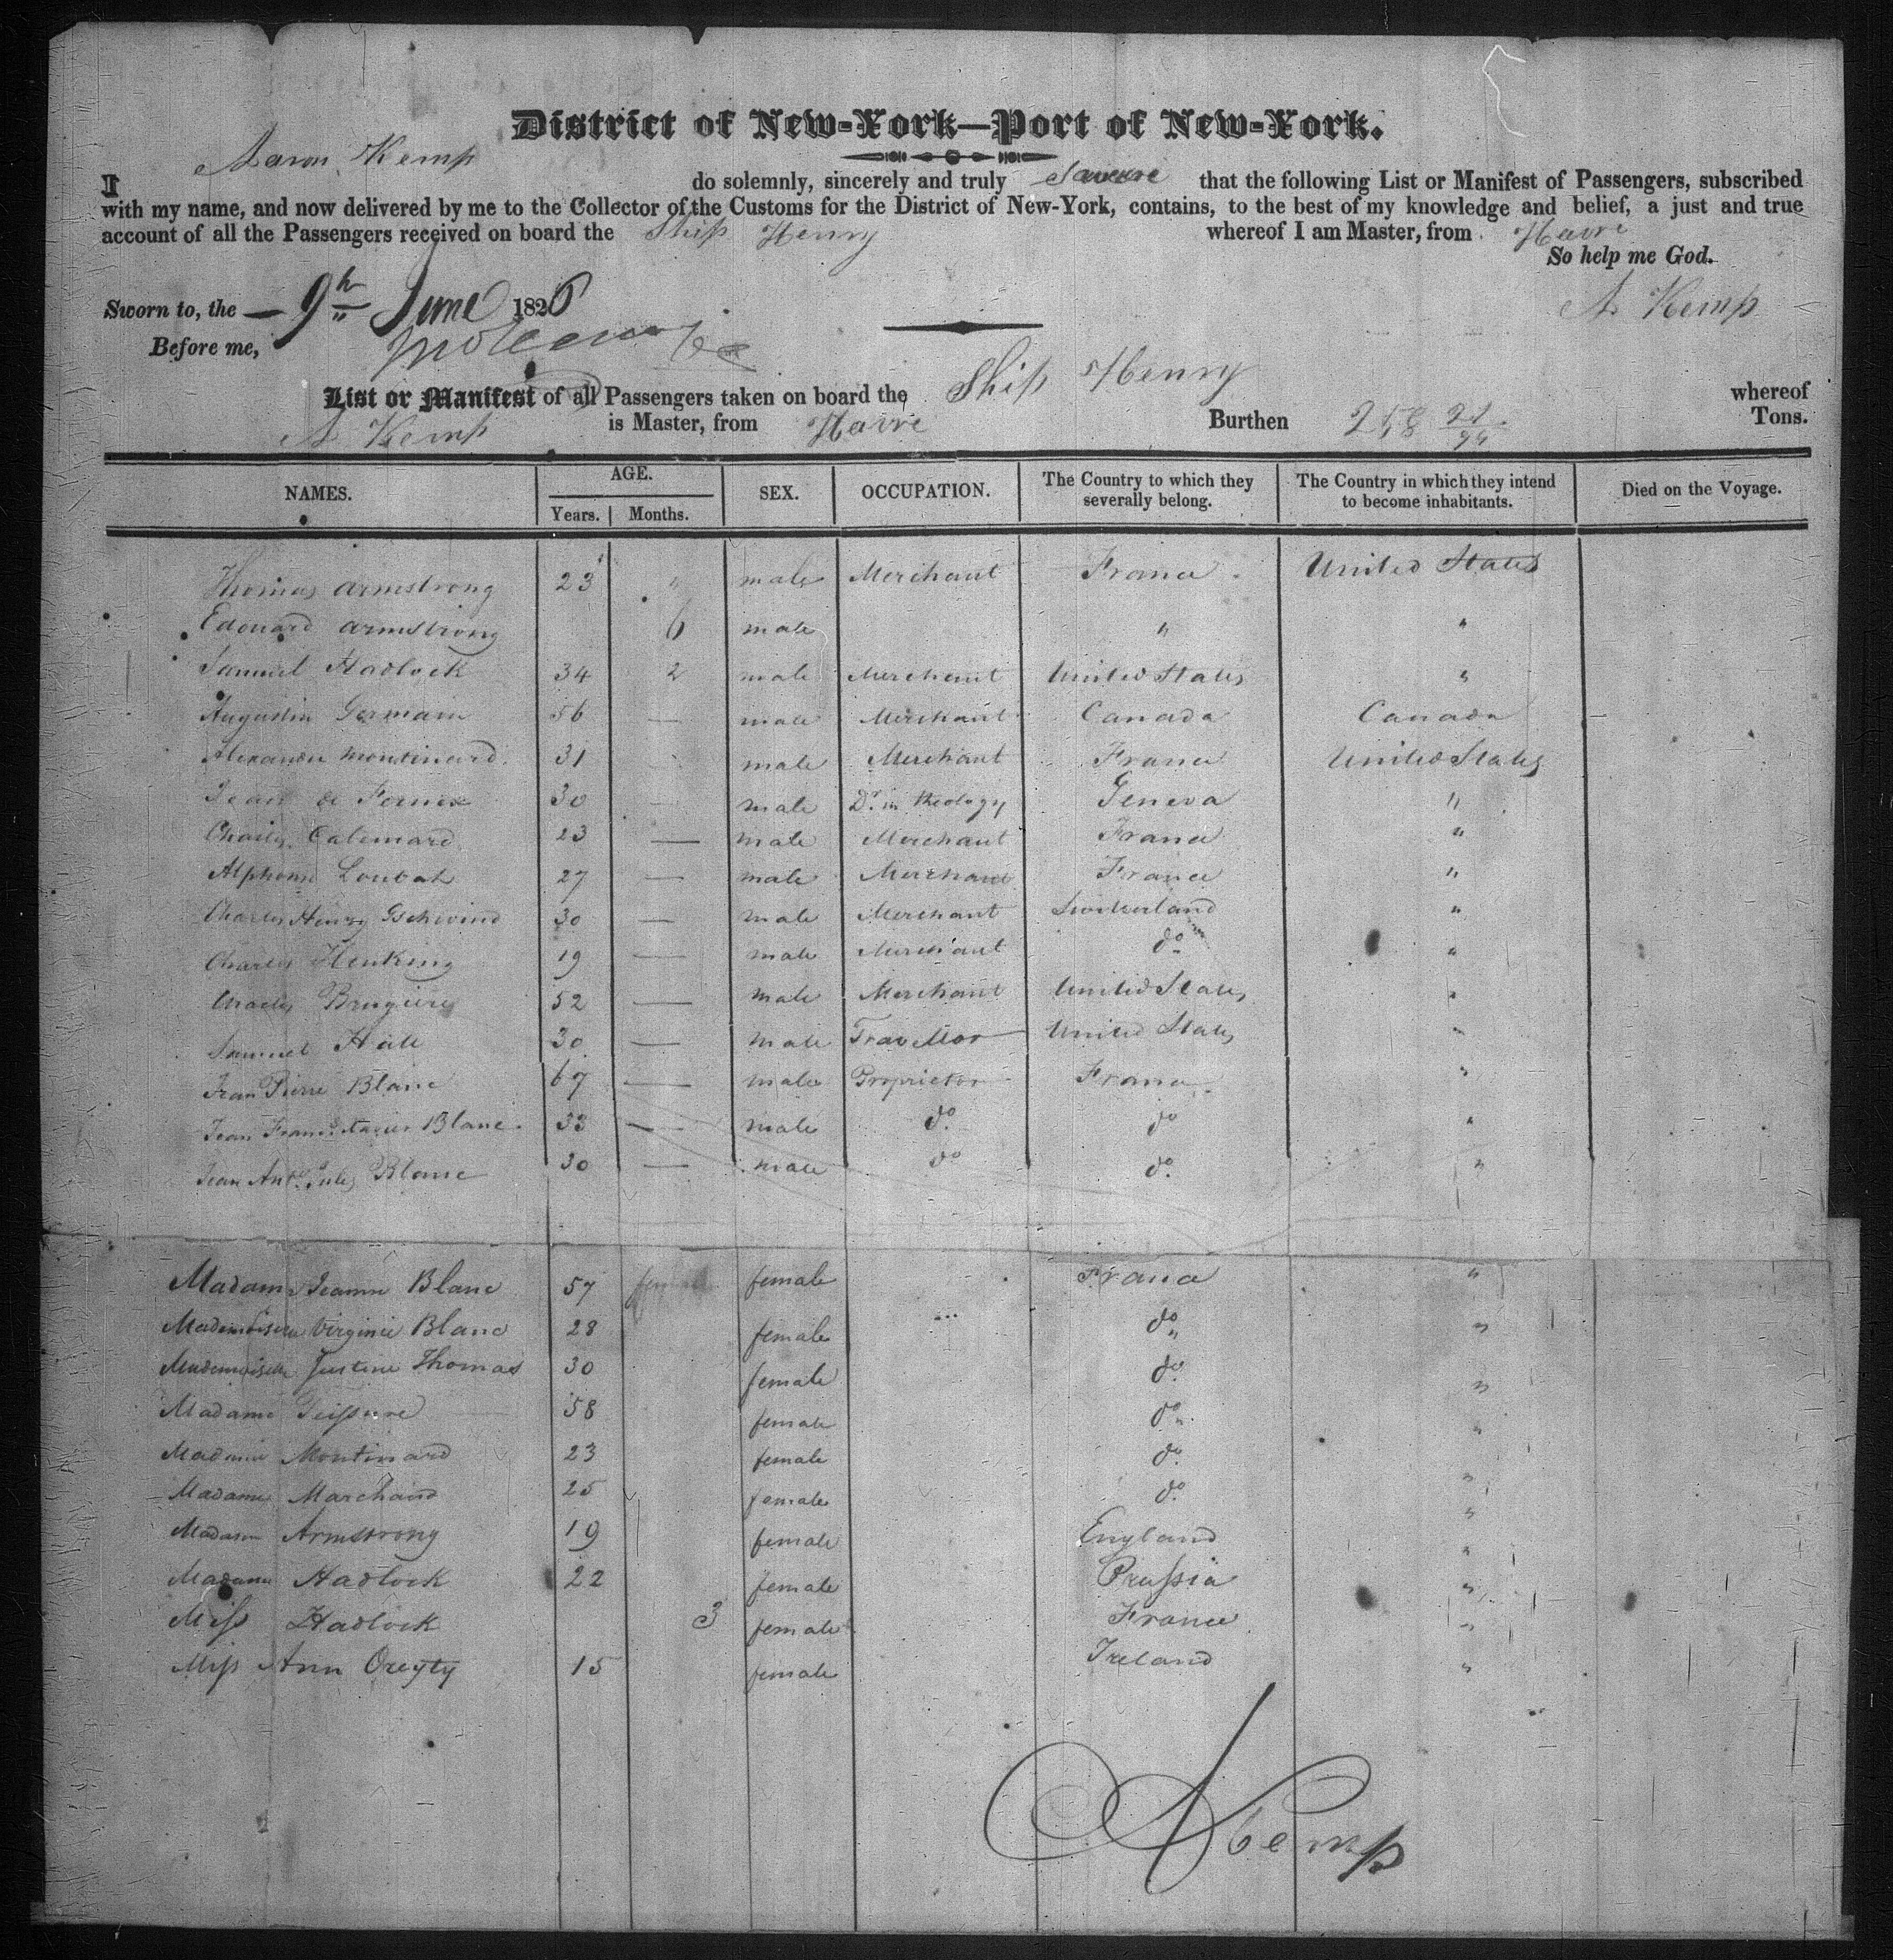 District of New-York—Port of New-York.
I Aaron Kemp do solemnly, sincerely and truly swear that the following List or Manifest of Passengers, subscribed
with my name, and now delivered by me to the Collector of the Customs for the District of New-York, contains, to the best of my knowledge and belief, a just and true
account of all the Passengers received on board the Ship Henry whereof I am Master, from Havre
So help me God.
Sworn to, the — 9th June 1826 A Kemp
Before me,
List or Manifest of all Passengers taken on board the Ship Henry whereof
A Kemp is Master, from Havre Burthen 258 Tons.
NAMES. AGE. SEX. OCCUPATION. The Country to which they severally belong. The Country in which they intend to become inhabitants. Died on the Voyage.
Years. Months.
Thomas Armstrong 23 " male Merchant France United States
Edouard Armstrong 6 male " "
Samuel Hadlock 34 2 male Merchant United States "
Augustin Germain 56 — male Merchant Canada Canada
Alexandre Montinard 31 male Merchant France United States
Jean de Fernex 30 — male Dr. in theology Geneva "
Charles Calemard 23 — male Merchant France "
Alphonse Loubat 27 — male Merchant France "
Charles Henry Gschwind 30 — male Merchant Switzerland "
Charles Henking 19 — male Merchant do "
Charles Brugiere 52 — male Merchant United States "
Samuel Hale 30 — male Travellor United States "
Jean Pierre Blanc 67 — male Proprietor France "
Jean Blanc 33 — male do. do "
Jean Ante. Jules Blanc 30 — male do do. "
Madam Jeanne Blanc 57 female France "
Mademoiselle Virginie Blanc 28 female do "
Mademoiselle Justine Thomas 30 female do. "
Madame 58 female do "
Madame Montinard 23 female do. "
Madame Marchand 25 female do. "
Madam Armstrong 19 female England "
Madame Hadlock 22 female Prussia "
Miss Hadlock 3 female France "
Miss Ann 15 female Ireland "
A Kemp